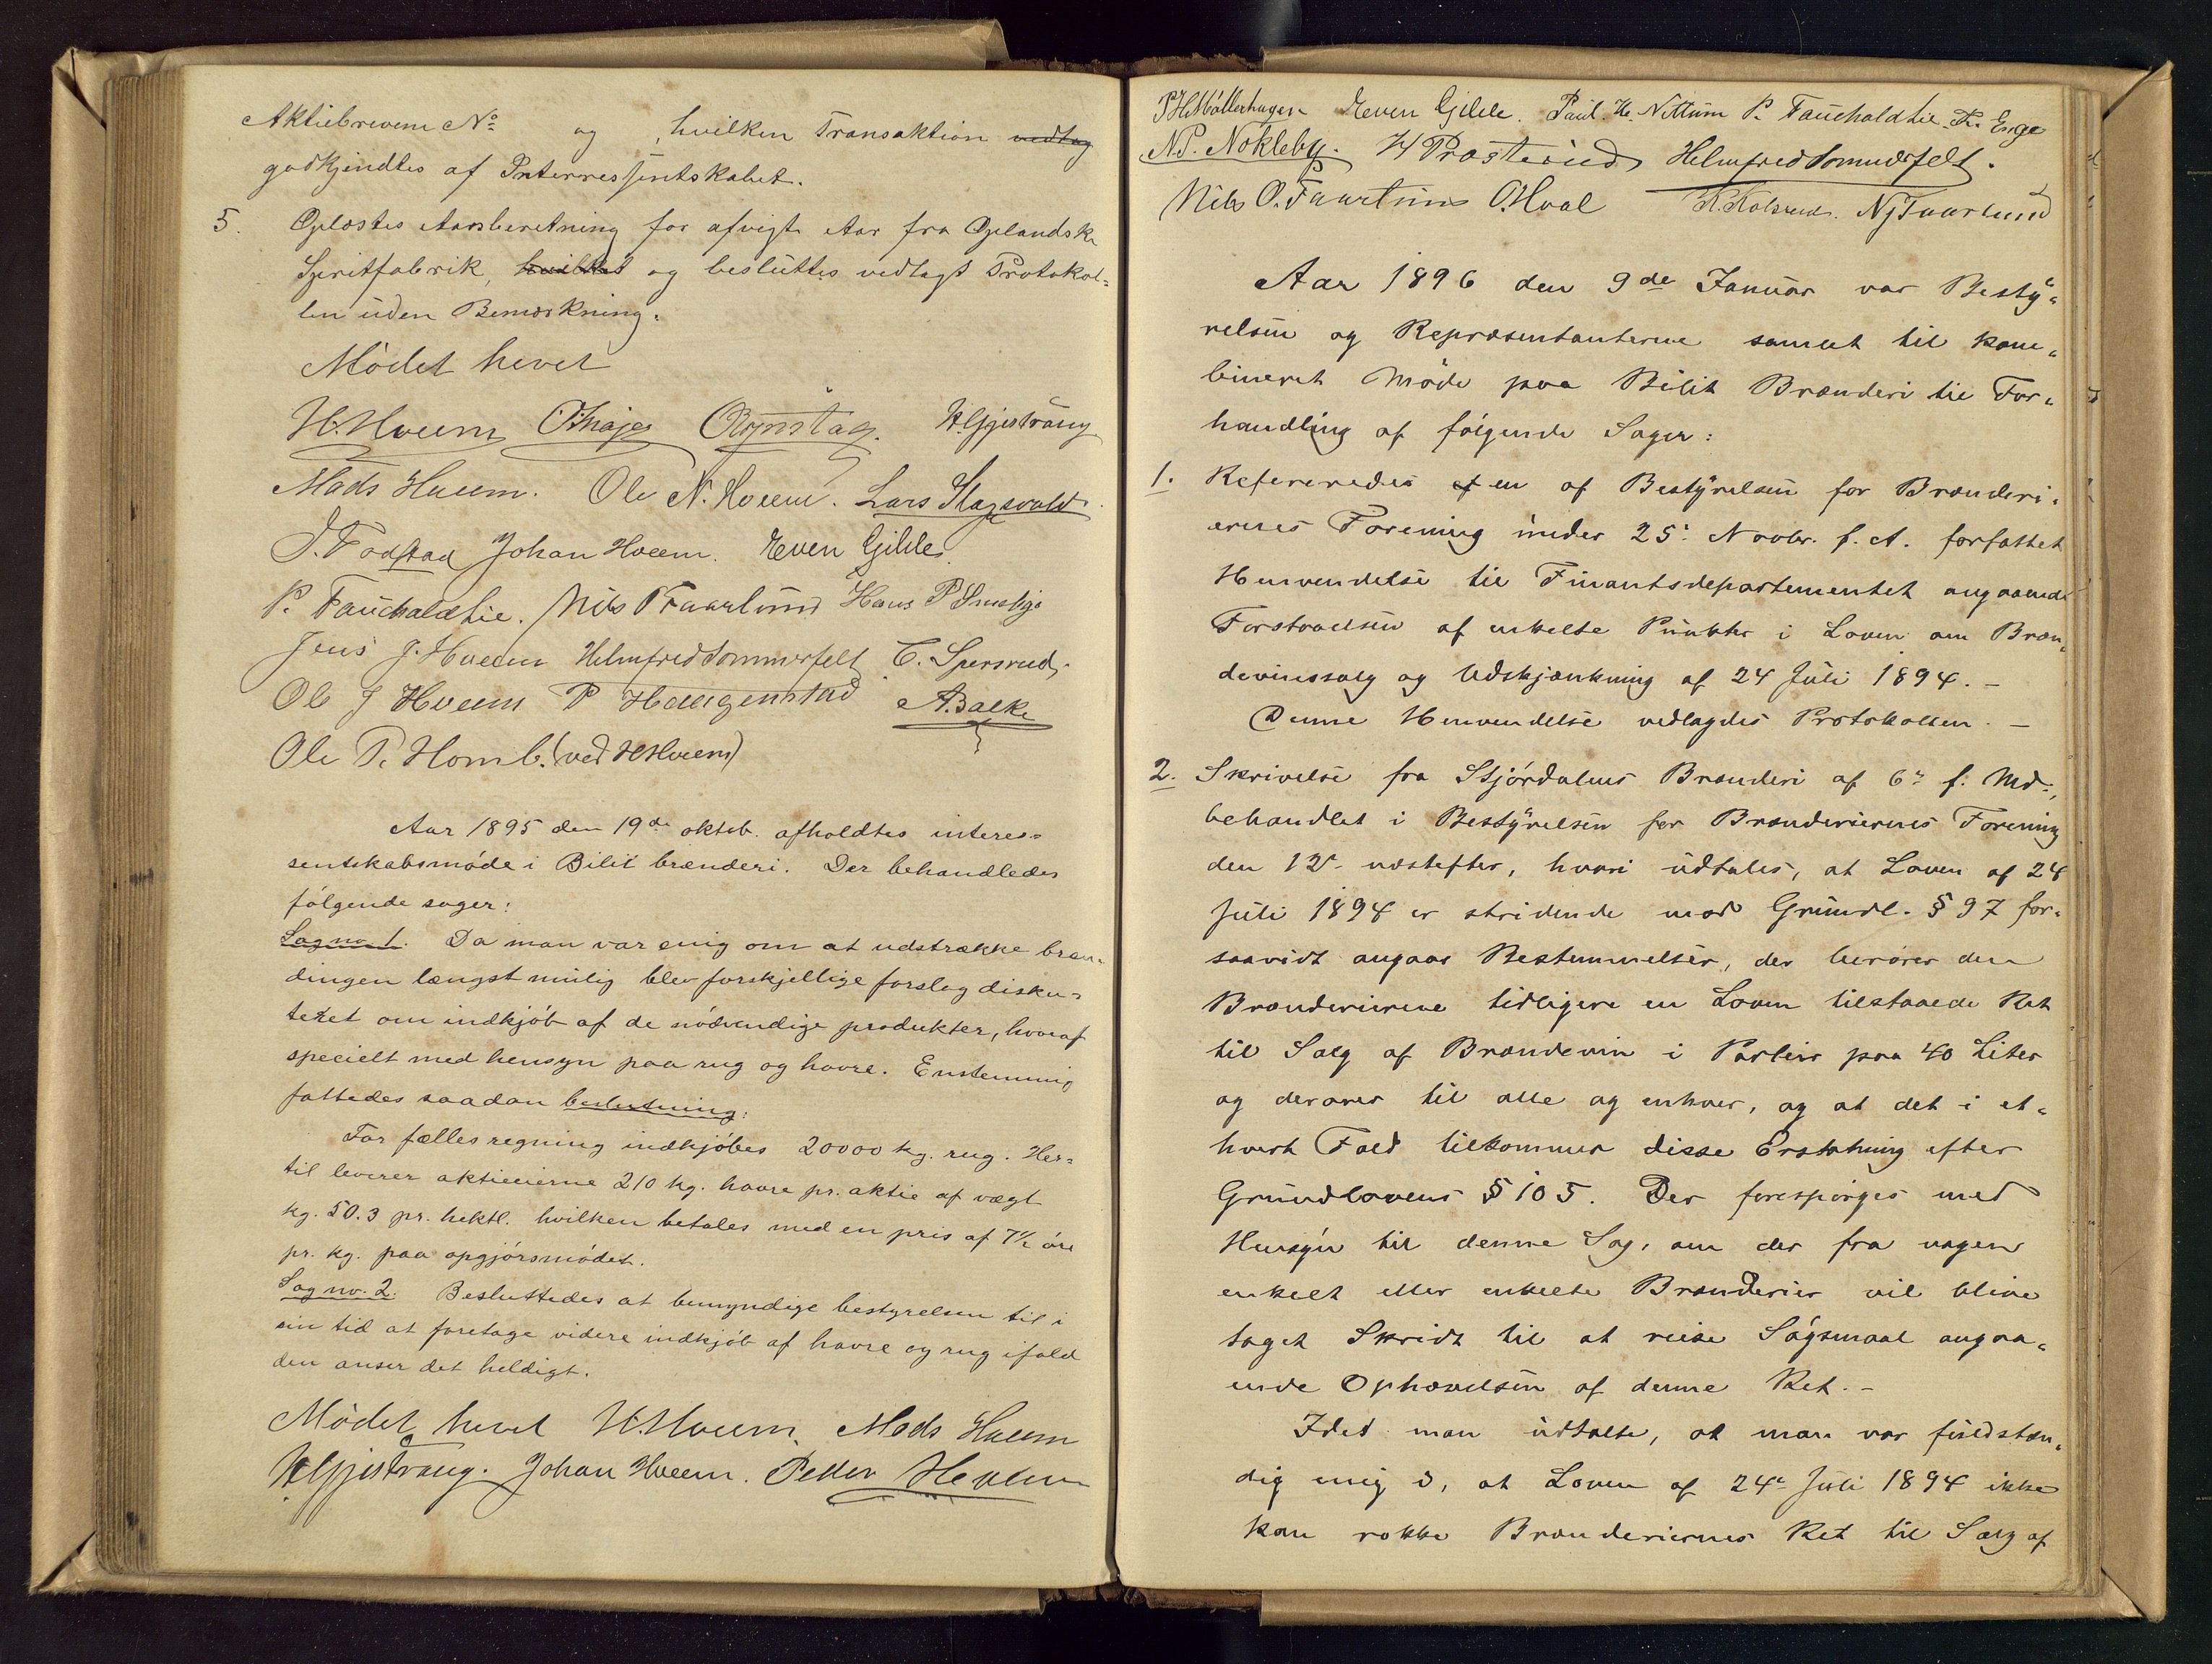 Aktiebrevem No og , hvilken Transaktion vedtog
godkjendtes af Interressentskabet.
5. Oplæstes Aarsberetning for afvigte Aar fra Oplandske
Spritfabrik, hvilket og besluttes vedlagt Protokol=
len uden Bemærkning.
Mödet hevet
H. Hveem O. Rognstad. H. Gjestrang
Mads Hveem. Ole N. Hveem. Lars Slagsvold
J. Fodstad Johan Hveem. Even Gihle
P. Fauchaldlie. Nils P Faarlund Hans P Smeby
Jens J. Hveem Helmfred Sommerfelt C. Spersrud.
Ole J Hveem P Haugenstad A. Balke
Ole P. Homb. (ved H Hveem)
Aar 1895 den 19de oktob. afholdtes interes=
sentskabsmöde i Bilit brænderi. Der behandledes
fölgende sager:
Sag no. 1. Da man var enig om at udstrække bræn=
dingen længst mulig blev forskjellige forslag disku=
teret om indkjöb af de nödvendige produkter, hvoraf
specielt med hensyn paa rug og havre. Enstemmig
fattedes saadan beslutning:
For fælles regning indkjöbes 20000 kg. rug. Her=
til leverer aktieeierne 210 kg. havre pr. aktie af vægt
kg. 50.3 pr. hektl. hvilken betales med en pris af 7½ öre
pr. kg. paa opgjörsmödet.
Sag no. 2. Besluttedes at bemyndige bestyrelsen til i
sin tid at foretage videre indkjöb af havre og rug ifald
den anser det heldigt.
Mödet hevet H. Hveem. Mads Hveem
H Gjestrang. Johan Hveem. Petter Hveem
P H Möllerhagen Even Gihle. Paul. H. Nettum P. Fauchaldlie. Fr. Enge
N. P. Nökleby. H Prösterud Helmfred Sommerfelt.
Nils O. Faarlund O. Hval K. Kolsrud. N J Faarlund
Aar 1896 den 9de Januar var Besty=
relsen og Repræsentanterne samlet til kom=
bineret Möde paa Bilit Brænderi til For=
handling af fölgende Sager:
1. Refereredes af en af Bestyrelsen for Brænderi=
ernes Forening under 25. Novbr. f. A. forfattet
Henvendelse til Finantsdepartementet angaaende
Forstaaelsen af enkelte Punkter i Loven om Bræn=
devinssalg og Udskjænkning af 24 Juli 1894. –
Denne Henvendelse vedlagdes Protokollen. –
2. Skrivelse fra Stjördalens Brænderi af 6. f. Md.,
behandlet i Bestyrelsen for Brænderiernes Forening
den 12. næstefter, hvori udtales, at Loven af 24
Juli 1894 er stridende mod Grundl. § 97 for=
saavidt angaar Bestemmelser, der berører den
Brænderierne tidligere en Loven tilstaaede Ret
til Salg af Brændevin i Partier paa 40 Liter
og derover til alle og enhver, og at det i et=
hvert Fald tilkommer disse Erstatning efter
Grundlovens § 105. Der forespörges med
Hensyn til denne Sag, om der fra nogen
enkelt eller enkelte Brænderier vil blive
taget Skridt til at reise Sögsmaal angaa=
ende Ophævelsen af denne Ret. –
Idet man udtalte, at man var fuldstæn=
dig enig i, at Loven af 24. Juli 1894 ikke
kan rokke Brænderiernes Ret til Salg af